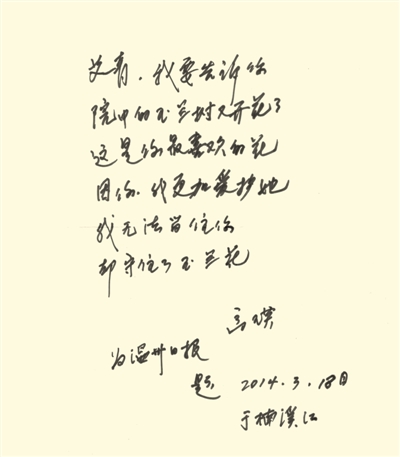 艾青，我要告诉你
院中的玉兰树又开花了
这是你最喜欢的花
因你，我更加爱护她
我无法留住你
却守住了玉兰花
高瑛
为温州日报
题
2014.3.18日
于楠溪江